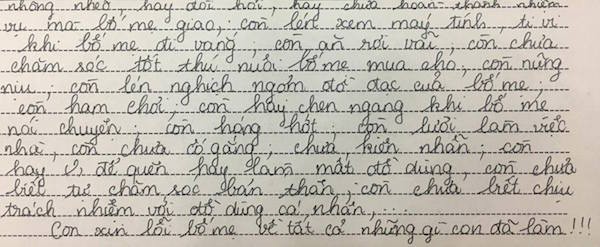 nhõng nhẽo, hay đòi hỏi, hay chưa hoàn thành nhiệm
vụ mà bố mẹ giao, con lén xem máy tính, ti vi
khi bố mẹ đi vắng, con ăn rơi vãi, con chưa
chăm sóc tốt thú nuôi bố mẹ mua cho, con nũng
nịu, con lén nghịch ngợm đồ đạc của bố mẹ,
con ham chơi, con hay chen ngang khi bố mẹ
nói chuyện; con hóng hớt; con lười làm việc
nhà, con chưa cố gắng; chưa kiên nhẫn; con
hay để quên hay làm mất đồ dùng, con chưa
biết tự chăm sóc bản thân, con chưa biết chịu
trách nhiệm với đồ dùng cá nhân, ...
Con xin lỗi bố mẹ về tất cả những gì con đã làm!!!